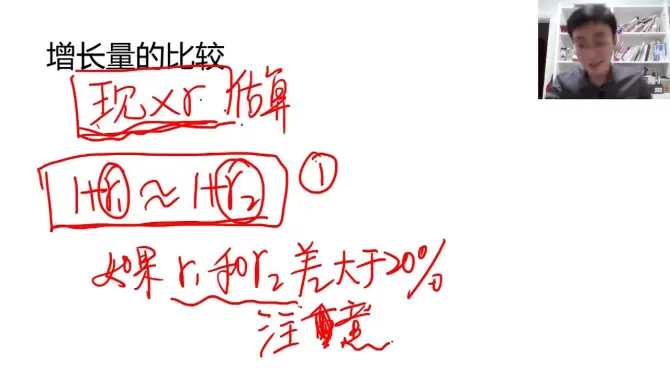 增长量的比较
现×r 估算
1+r₁≈1+r₂ ①
如果 r₁和r₂差大于20%
注意